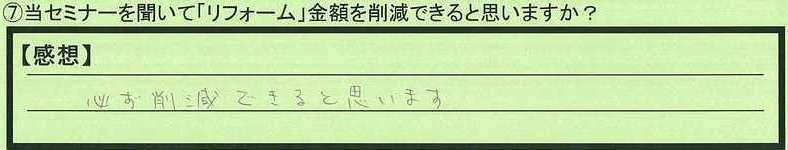 ⑦当セミナーを聞いて「リフォーム」金額を削減できると思いますか？
【感想】
必ず削減できると思います